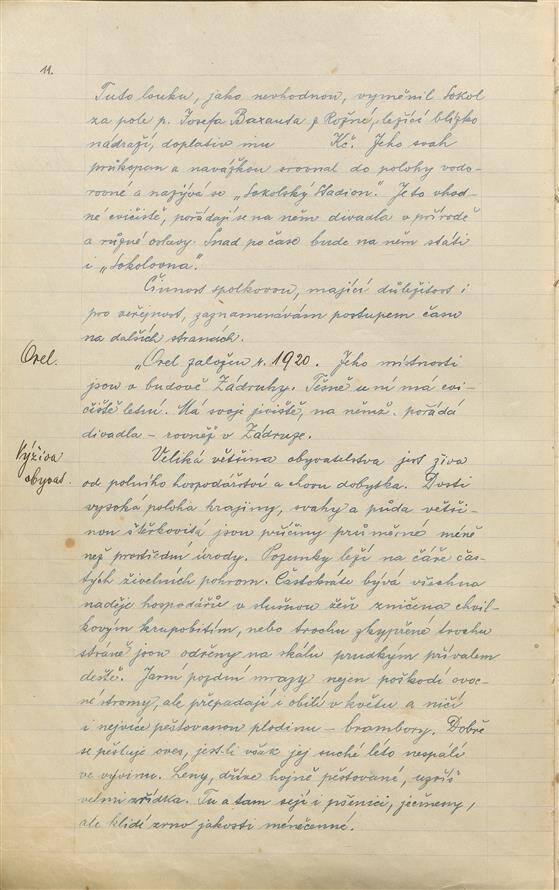 11.
Tuto louku, jako nevhodnou, vyměnil Sokol
za pole p. Josefa Baxanta z Rožné, ležící blízko
nádraží, doplativ mu Kč. Jeho svah
průkopem a navážkou srovnal do polohy vodo-
rovné a nazývá se "Sokolský stadion". Je to vhod-
né cvičiště, pořádají se na něm divadla v přírodě
a různé oslavy. Snad po čase bude na něm státi
i "Sokolovna".
Činnost spolkovou, mající důležitost i
pro veřejnost, zaznamenávám postupem času
na dalších stranách.
Orel.
"Orel založen r. 1920. Jeho místnosti
jsou v budově Zádruhy. Těsně u ní má cvi-
čiště letní. Má svoje jeviště, na němž pořádá
divadla - rovněž v Zádruze.
Výživa
obyvat.
Veliká většina obyvatelstva jest živa
od polního hospodářství a chovu dobytka. Dosti
vysoká poloha krajiny, svahy a půda větši-
nou štěrkovitá jsou příčiny průměrně méně
než prostřední úrody. Pozemky leží na čáře čas-
tých živelních pohrom. Častokráte bývá všechna
naděje hospodářů v slušnou žeň zničena chvil-
kovým krupobitím, nebo trochu zkypřené trochu
stráně jsou odřeny na skálu prudkým přívalem
deště. Jarní pozdní mrazy nejen poškodí ovoc-
né stromy, ale přepadají i obilí v květu a ničí
i nejvíce pěstovanou plodinu - brambory. Dobře
se pěstuje oves, jest-li však jej suché léto nespálí
ve vývinu. Leny, dříve hojně pěstované, uzříš
velmi zřídka. Tu a tam sejí i pšenici, ječmeny,
ale klidí zrno jakosti méněcenné.